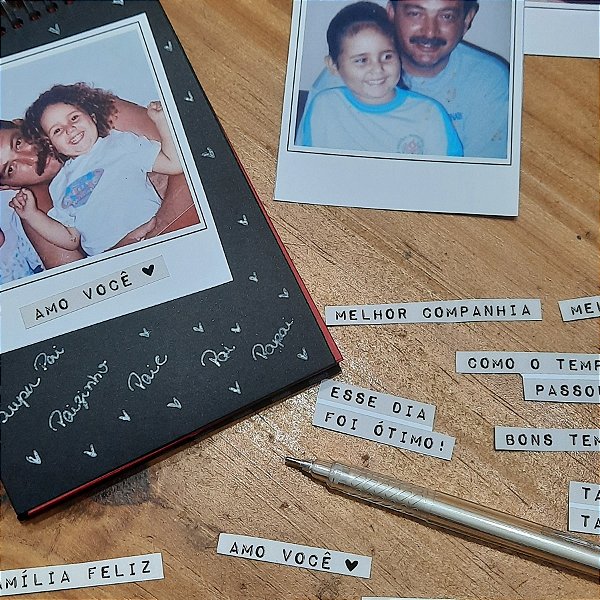 AMO VOCÊ ♥
Super Pai
Paizinho
Pai
Papai
MELHOR COMPANHIA
COMO O TEMP
PASSO
ESSE DIA
FOI ÓTIMO!
BONS TEM
TA
TA
AMO VOCÊ ♥
AMÍLIA FELIZ